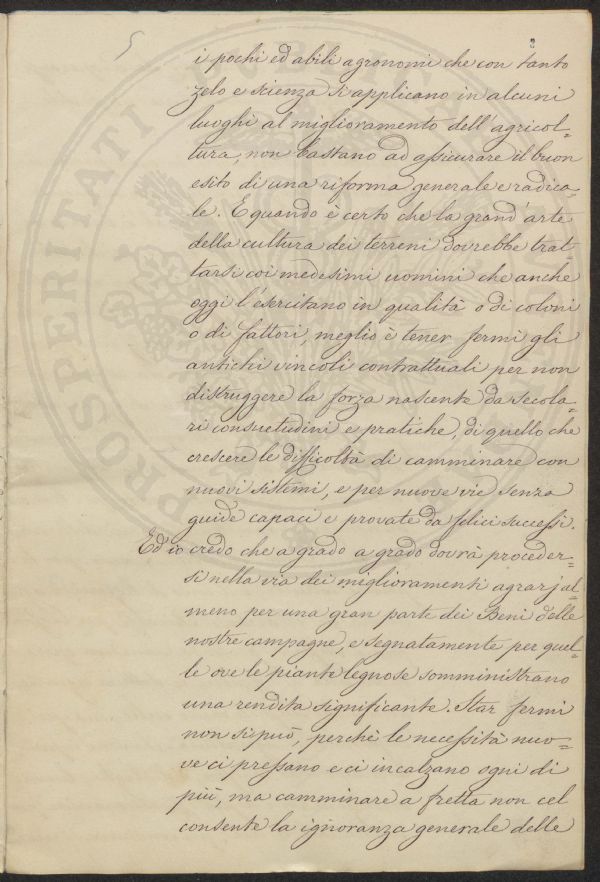 5
i pochi ed abili agronomi che con tanto
zelo e scienza si applicano in alcuni
luoghi al miglioramento dell'agricol=
tura, non bastano ad assicurare il buon
esito di una riforma generale e radica=
le. E quando è certo che la grand'arte
della cultura dei terreni dovrebbe trat=
tarsi coi medesimi uomini che anche
oggi l'esercitano in qualità o di coloni
o di fattori, meglio è tener fermi gli
antichi vincoli contrattuali per non
distruggere la forza nascente da secola=
ri consuetudini e pratiche, di quello che
crescere le difficoltà di camminare con
nuovi sistemi, e per nuove vie senza
guide capaci e provate da felici successi.
Ed io credo che a grado a grado dovrà proceder=
si nella via dei miglioramenti agrarj al=
meno per una gran parte dei Beni delle
nostre campagne, e segnatamente per quel=
le ove le piante legnose somministrano
una rendita significante. Star fermi
non si può, perchè le necessità nuo=
ve ci pressano e ci incalzano ogni dì
più, ma camminare a fretta non cel
consente la ignoranza generale delle
PROSPERITATI PUBLICAE